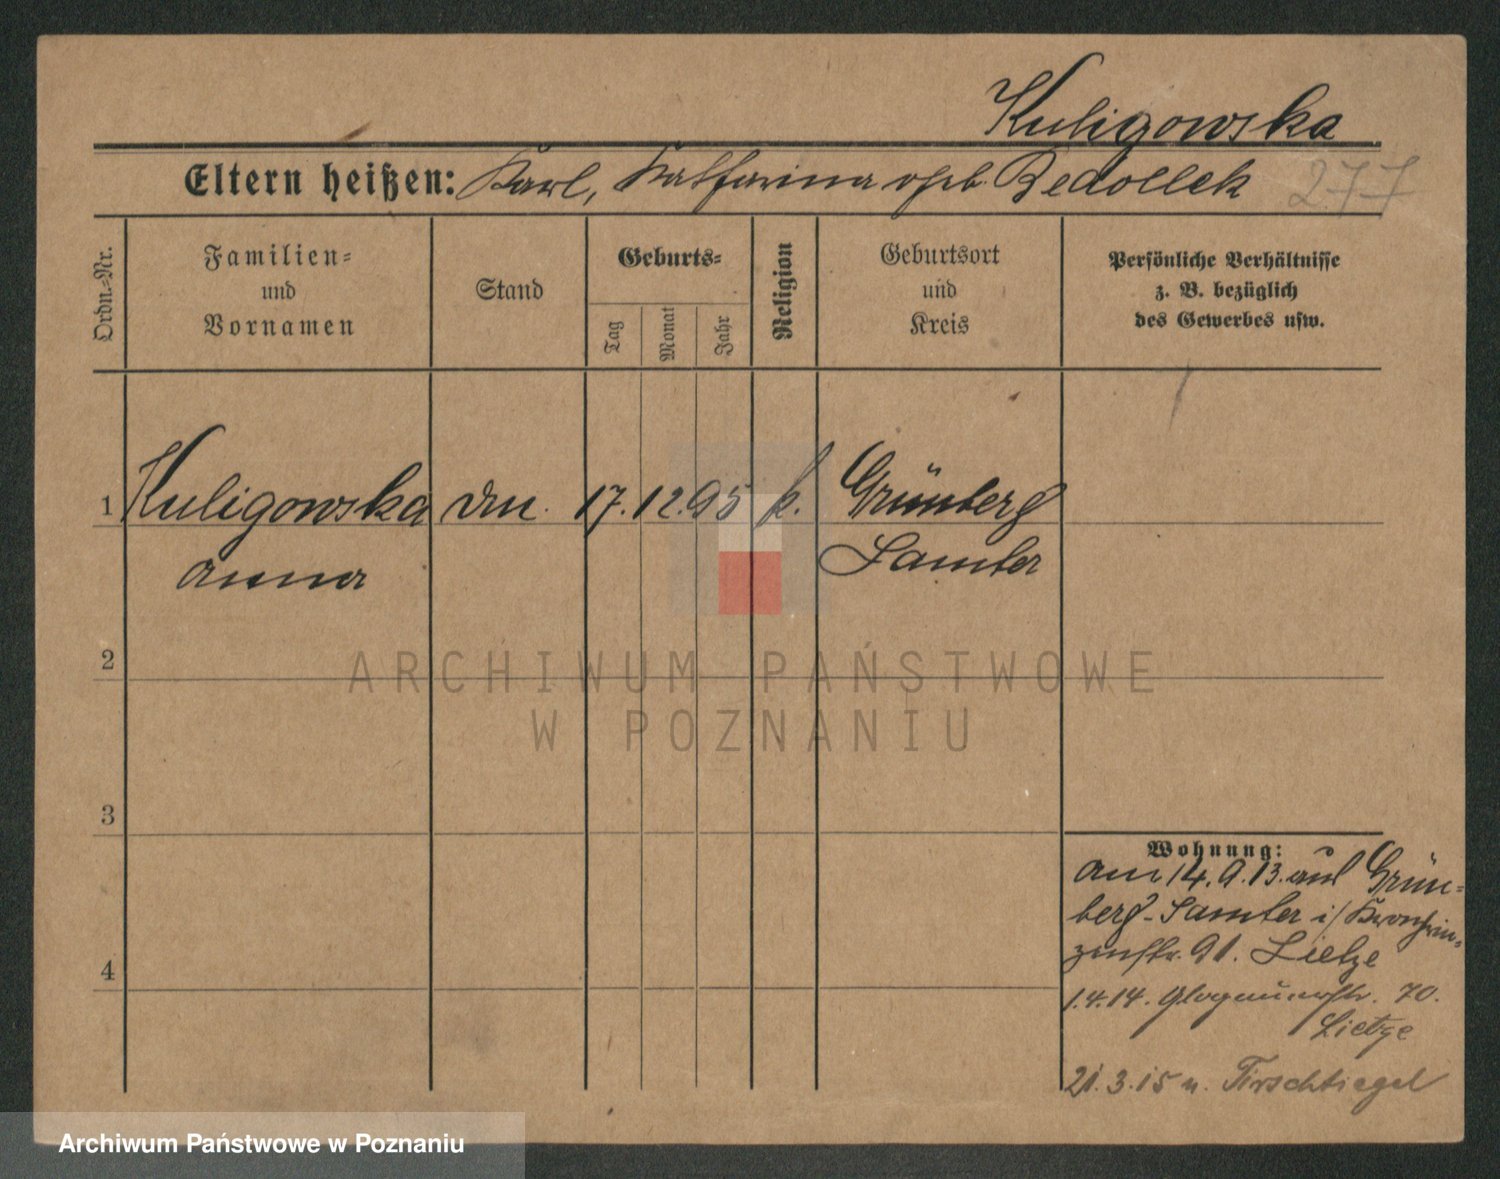 Kuligowska
Eltern heißen: Karl, Katharina geb. Bedollek 277
Ordn.-Nr.
Familien-
und
Vornamen
Stand
Geburts-
Tag
Monat
Jahr
Religion
Geburtsort
und
Kreis
Persönliche Verhältnisse
z. B. bezüglich
des Gewerbes usw.
1 Kuligowska 17. 12. 95 k. Grünberg
Anna Samter
2
3
4
Wohnung:
am 14.9.13. aus Grün-
berg-Samter i/ Kronprin-
zenstr. 91. Lietze
1.4.14. Glogauerstr. 70.
Lietze
21.3.15 n. Tirschtiegel
ARCHIWUM PAŃSTWOWE
W POZNANIU
Archiwum Państwowe w Poznaniu